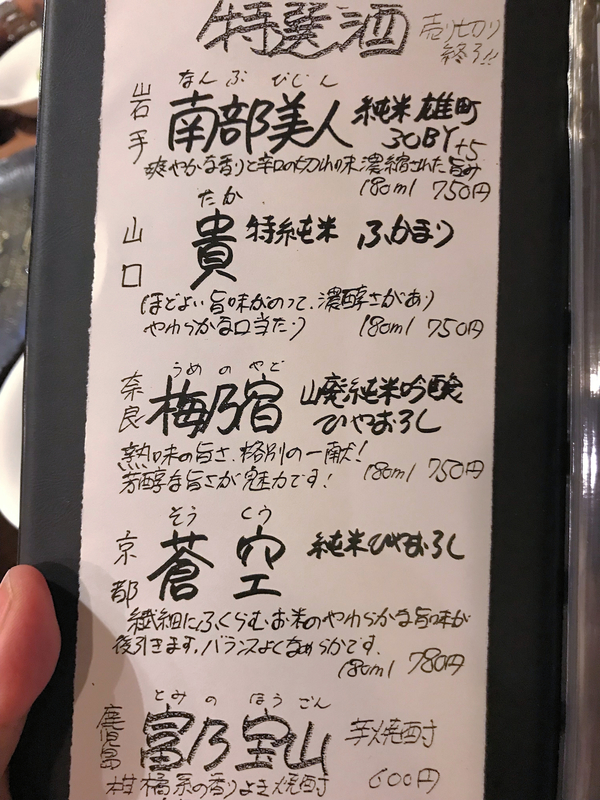 特選酒
売り切り
終了!!
なんぶびじん
岩手
南部美人 純米雄町
30BY +5
爽やかな香りと辛口の切れ味 濃縮された旨み
180ml 750円
たか
山口
貴 特純米 ふかまり
ほどよい旨味がのって、濃醇さがあり
やわらかな口当たり 180ml 750円
うめのやど
奈良
梅乃宿 山廃純米吟醸
ひやおろし
熟味の旨さ、格別の一献!
芳醇な旨さが魅力です! 180ml 750円
そうくう
京都
蒼空 純米ひやおろし
繊細にふくらむお米のやわらかな旨味が
後引きます。バランスよくなめらかです。
180ml 780円
とみのほうざん
鹿児島
富乃宝山 芋焼酎
柑橘系の香りよき焼酎 600円